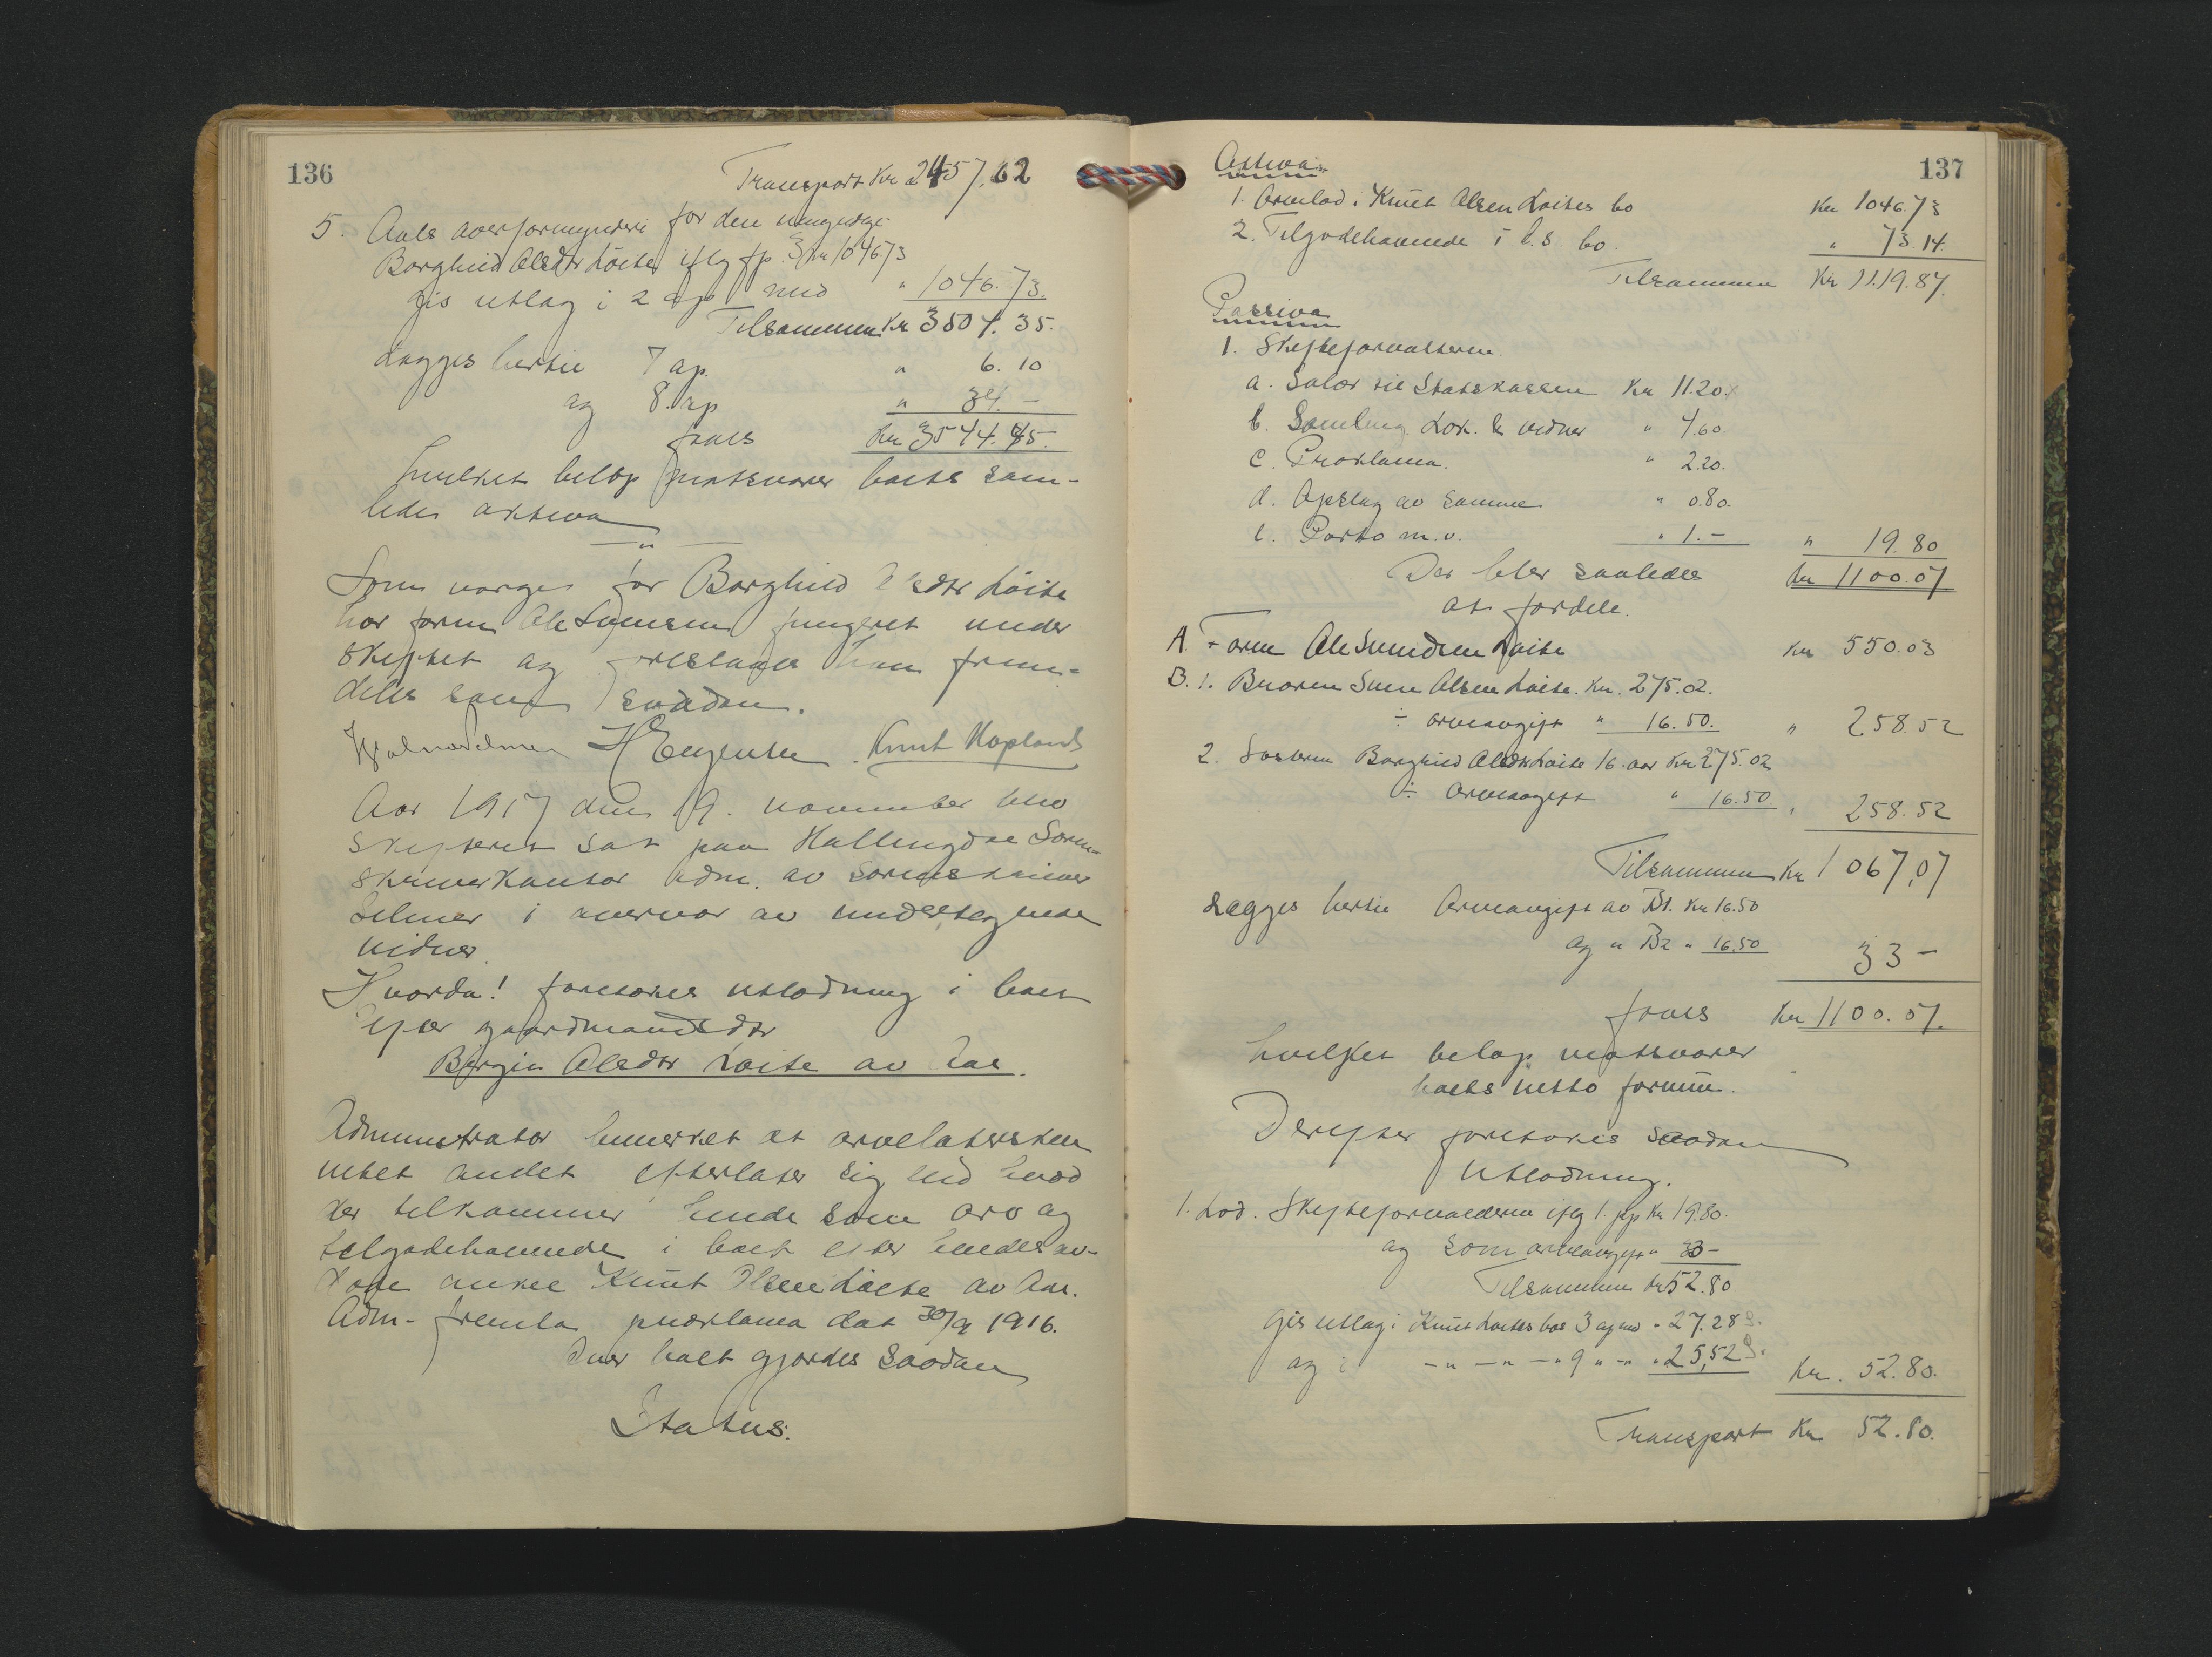 136
Transport Kr 2457.62
5. Aals overformynderi for den umyndige
Borghild Olsdtr Löite iflg fp. 3 kr 1046.73
gis utlag i 2 ap med " 1046.73.
Tilsammen Kr 3504.35.
Lægges hertil 7 ap. " 6.10
og 8. ap " 34.-
faaes Kr 3544.45.
hvilket beløp motsvarer boets sam-
lede aktiva
— " —
Som verge for Borghild Olsdtr Löite
har faren Ole fungeret under
skiftet og foreslaaes han frem-
deles som saadan.
Knut Kopland
Aar 1917 den 19. november blev
skifteret sat paa Hallingdal Soren-
skriverkontor adm. av sorenskriver
Selmer i overvær av undertegnede
vidner.
Hvorda! foretokes utlodning i boet
efter gaardmandsdtr
Birgit Olsdtr Löite av Aal.
Administrator bemerket at arvelatersken
intet andet efterlater sig end hvad
der tilkommer hende som arv og
tilgodehavende i boet efter hendes av-
døde onkel Knut Olsen Löite av Aal.
Adm. fremla proklama dat 30/9 1916.
Over boet gjordes saadan
Status:
137
Aktiva
1. Arvelod i Knut Olsen Löites bo Kr 1046.73
2. Tilgodehavende i s. bo. " 73.14
Tilsammen Kr 1119.87.
Passiva
1. Skifteforvalteren
a. Salær til Statskassen Kr 11.20
b. Samling. Lok. & vidner " 4.60
c. Proklama. " 2.20.
d. Opslag av samme " 0.80.
e. Porto m.v. " 1.- " 19.80
Der blir saaledes Kr 1100.07
at fordele.
A. Faren Ole Löite Kr 550.03
B. 1. Broren Svein Olsen Löite. Kr. 275.02.
÷ arveavgift " 16.50. " 258.52
2. Søsteren Borghild Olsdtr Löite 16 aar Kr 275.02
÷ Arveavgift " 16.50. " 258.52
Tilsammen Kr 1067,07
Lægges hertil Arveavgift av B1. Kr 16.50
og " B2 " 16.50 33-
faaes Kr 1100.07.
hvilket beløp motsvarer
boets netto formue.
Derefter foretokes saadan
Utlodning.
1. Lod. Skifteforvalteren iflg 1. pp Kr 19.80.
og som arveavgift " 33-
Tilsammen Kr 52.80
gis utlag i Knut Löites bos 3 ap med " 27.28
og i - " - " - " 9 " - " " 25,52 Kr. 52.80.
Transport Kr 52.80.